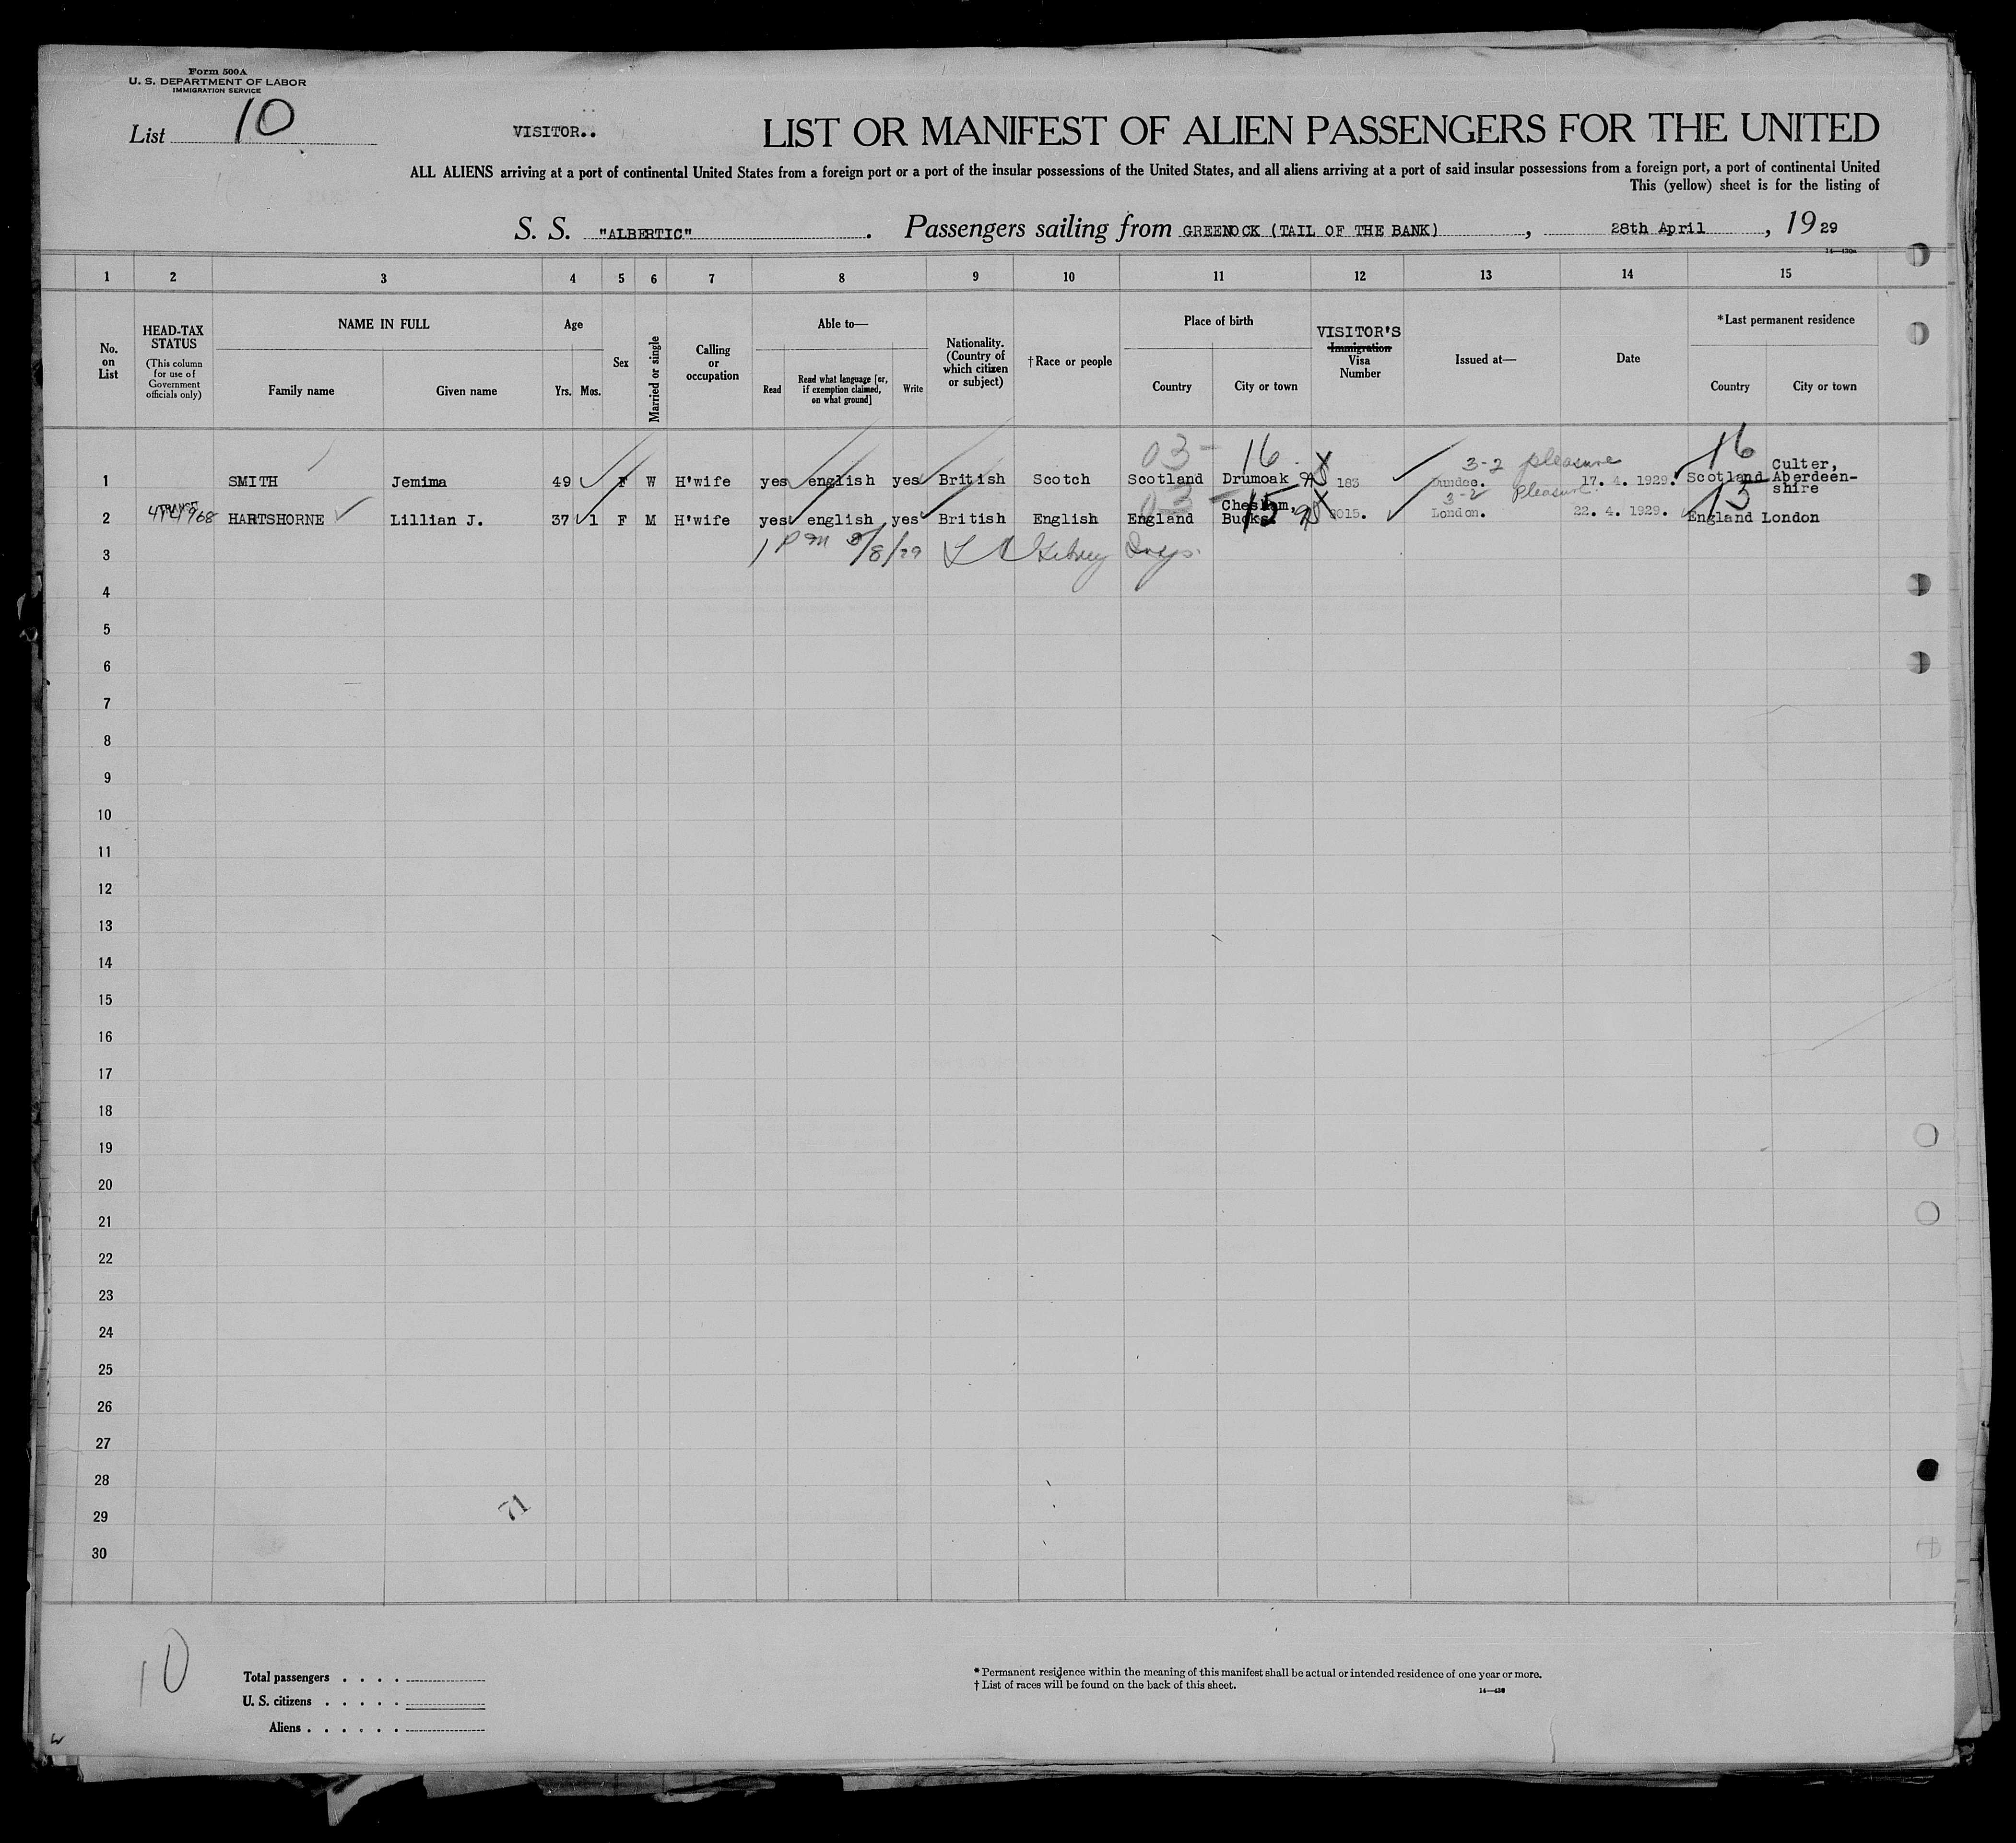 Form 500A
U. S. DEPARTMENT OF LABOR
IMMIGRATION SERVICE
List 10
VISITOR..
LIST OR MANIFEST OF ALIEN PASSENGERS FOR THE UNITED
ALL ALIENS arriving at a port of continental United States from a foreign port or a port of the insular possessions of the United States, and all aliens arriving at a port of said insular possessions from a foreign port, a port of continental United
This (yellow) sheet is for the listing of
S. S. "ALBERTIC". Passengers sailing from GREENOCK (TAIL OF THE BANK), 28th April, 1929
14—430a
1 2 3 4 5 6 7 8 9 10 11 12 13 14 15
No. on List
HEAD-TAX STATUS
(This column for use of Government officials only)
NAME IN FULL
Family name Given name
Age
Yrs. Mos.
Sex
Married or single
Calling or occupation
Able to—
Read
Read what language [or, if exemption claimed, on what ground]
Write
Nationality. (Country of which citizen or subject)
†Race or people
Place of birth
Country City or town
VISITOR'S
Immigration
Visa Number
Issued at—
Date
*Last permanent residence
Country City or town
03- 16 3-2 pleasure 16
1 SMITH Jemima 49 F W H'wife yes english yes British Scotch Scotland Drumoak 183 Dundee. 17. 4. 1929. Scotland Culter, Aberdeen-shire
03- 15 3-2 Pleasure 15
2 HARTSHORNE Lillian J. 37 1 F M H'wife yes english yes British English England Chesham, Bucks. London. 22. 4. 1929. England London
3 8/8/29
4
5
6
7
8
9
10
11
12
13
14
15
16
17
18
19
20
21
22
23
24
25
26
27
28
29
30
71
10
Total passengers . . . .
U. S. citizens . . . . .
Aliens . . . . . .
* Permanent residence within the meaning of this manifest shall be actual or intended residence of one year or more.
† List of races will be found on the back of this sheet.
14—430